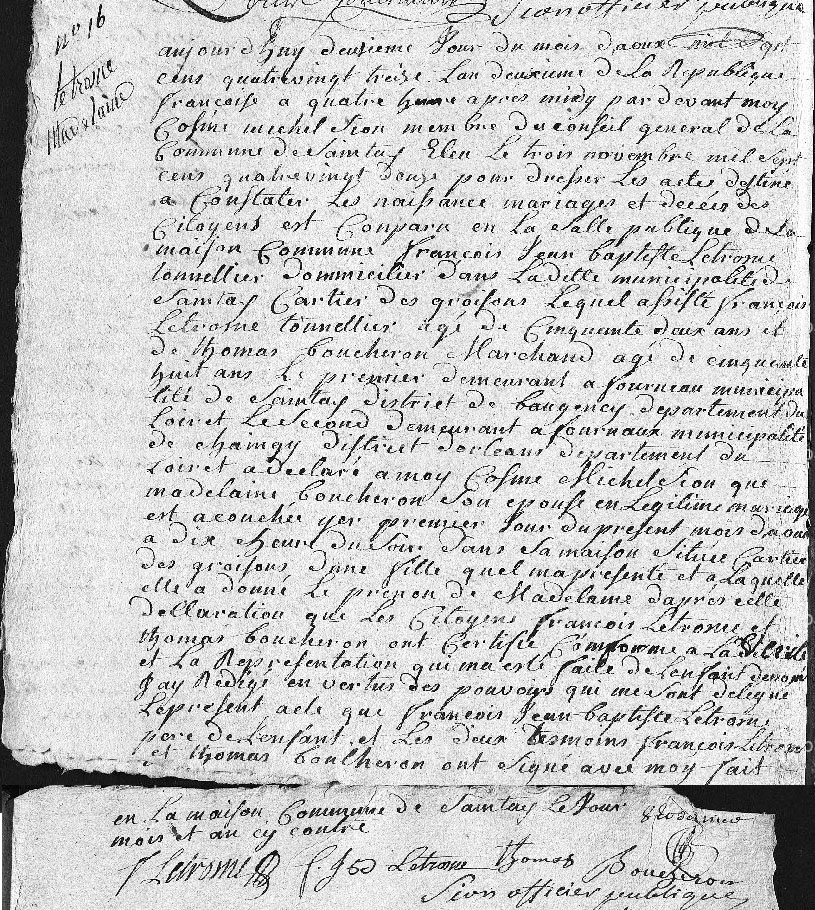 Sion officier publique
n° 16
Letrosne
Madelaine
aujourd'Huy deuxieme Jour du mois daoux mil Sept
cens quatrevingt treize Lan deuxieme de La Republique
francoise a quatre heure apres midy par devant moy
Cosme michel Sion membre du conseil general de La
Commune de Saintay Elen Le trois novembre mil Sept
cens quatrevingt douze pour dresser Les actes destiné
a Constater Les naissance mariages et deceis des
Citoyens est Comparu en La Salle publique de La
maison Commune francois Jean baptiste Letrosne
tonnellier dommicilier dans Laditte municipalité de
Saintay Cartier des groisons Lequel assisté francois
Letrosne tonnellier agé de Cinquante deux ans et
de thomas boucheron Marchand agé de cinquente
huit ans Le premier demeurant a fourneau municipa
lité de Saintay district de baugency departement du
Loiret Le Second demeurant a fournaux municipalité
de chaingy district dorleans departement du
Loiret a declaré a moy Cosme Michel Sion que
madelaine boucheron Son epouse en Legitime mariage
est acouchée yer premier Jour du present mois daoux
a dix heure du Soir dans Sa maison Située Cartier
des groisons dune fille quel ma presenté et a Laquelle
elle a donné Le prenon de Madelaine dapres cette
declaration que Les Citoyens francois Letrosne et
thomas boucheron ont Certifié Comforme a La Verité
et La Representation qui ma esté faite de Lenfant denom
Jay Redigé en vertus des pouvoirs qui me Sont delegué
Le present acte que francois Jean baptiste Letrosne
pere de Lenfant et Les deux tesmoins francois Letrosn
et thomas boucheron ont Signé avec moy fait
en La maison Commune de Saintay Le Jour
mois et an cy contre
f Letrosne f. J bd Letrosne thomas Boucheron
Sion officier publique